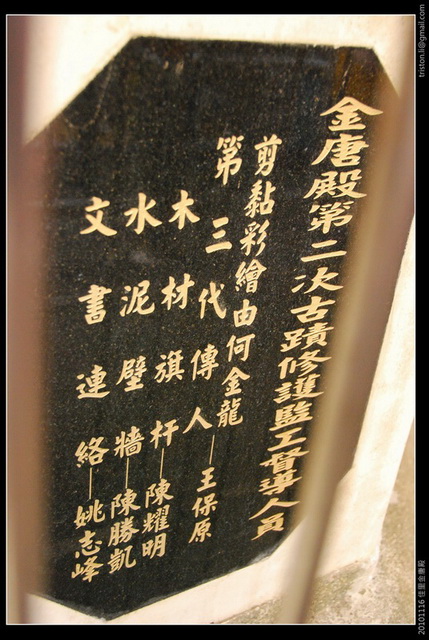 金唐殿第二次古蹟修護監工督導人員
剪黏彩繪由何金龍
第三代傳人—王保原
木材旗杆—陳耀明
水泥壁牆—陳勝凱
文書連絡—姚志峰
triston.li@gmail.com
20101116 佳里金唐殿